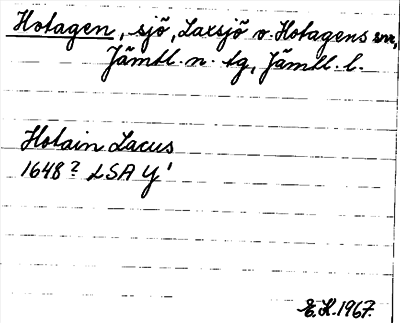 Hotagen, sjö, Laxsjö o. Hotagens snr,
Jämtl. n. tg, Jämtl. l.
Hotain Lacus
1648? LSA Y'
E.H. 1967.